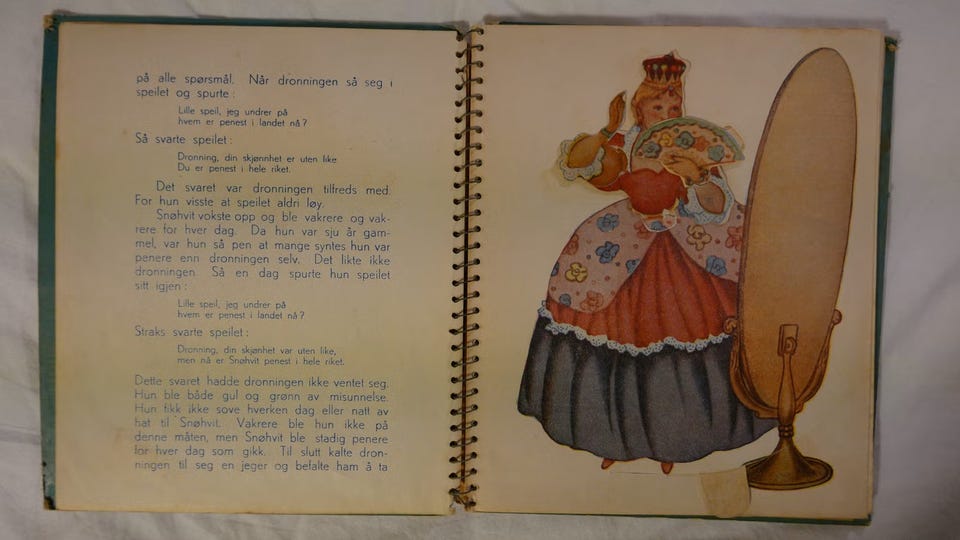 på alle spørsmål. Når dronningen så seg i
speilet og spurte:
Lille speil, jeg undrer på
hvem er penest i landet nå?
Så svarte speilet:
Dronning, din skjønnhet er uten like
Du er penest i hele riket.
Det svaret var dronningen tilfreds med.
For hun visste at speilet aldri løy.
Snøhvit vokste opp og ble vakrere og vak-
rere for hver dag. Da hun var sju år gam-
mel, var hun så pen at mange syntes hun var
penere enn dronningen selv. Det likte ikke
dronningen. Så en dag spurte hun speilet
sitt igjen:
Lille speil, jeg undrer på
hvem er penest i landet nå?
Straks svarte speilet:
Dronning, din skjønhet var uten like,
men nå er Snøhvit penest i hele riket.
Dette svaret hadde dronningen ikke ventet seg.
Hun ble både gul og grønn av misunnelse.
Hun fikk ikke sove hverken dag eller natt av
hat til Snøhvit. Vakrere ble hun ikke på
denne måten, men Snøhvit ble stadig penere
for hver dag som gikk. Til slutt kalte dron-
ningen til seg en jeger og befalte ham å ta